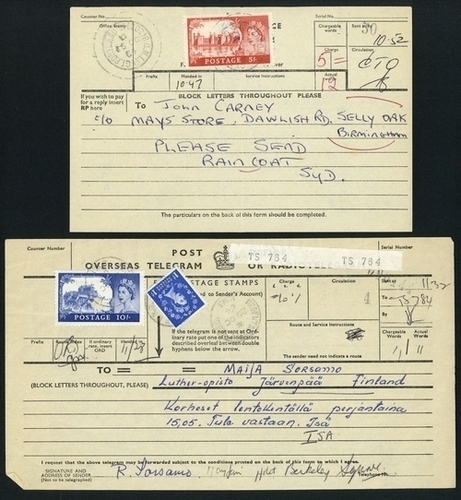 Counter No.
Serial No.
Office Stamp
Chargeable words
10.52
POSTAGE 5/-
Charge
5=
Circulation
Actual
12
Prefix
Handed in
1047
Service Instructions
If you wish to pay for a reply insert RP here
BLOCK LETTERS THROUGHOUT PLEASE
To JOHN CARNEY
c/o MAYS STORE, DAWLISH RD, SELLY OAK
BIRMINGHAM
PLEASE SEND
RAINCOAT
SYD.
The particulars on the back of this form should be completed.
Counter Number
POST
Serial Number
TS 784 TS 784
OVERSEAS TELEGRAM OR RADIOTELEGRAM
POSTAGE STAMPS
to Sender's Account)
Charge
Circulation
Sent at
11/32
TS784
By
POSTAGE 10/-
If the telegram is not sent at Ordinary rate put one of the indicators described overleaf between double hyphens below the arrow.
Route and Service Instructions
The sender need not indicate a route
Chargeable Words
Actual Words
11
Prefix
If ordinary rate, insert ORD
Handed in
11/23
TO = = MAIJA SORSAMO
(BLOCK LETTERS THROUGHOUT, PLEASE)
Luther-opisto Järvenpää Finland
Korhoset lentokentöllä perjantaina
15,05. Tule vastaan. Isä
ISA
I request that the above telegram may be forwarded subject to the printed conditions on the back of this form to which I agree.
SIGNATURE AND ADDRESS OF SENDER
(Not to be telegraphed)
R. Sorsamo Mayfair Hotel Berkeley Square
Telephone No.